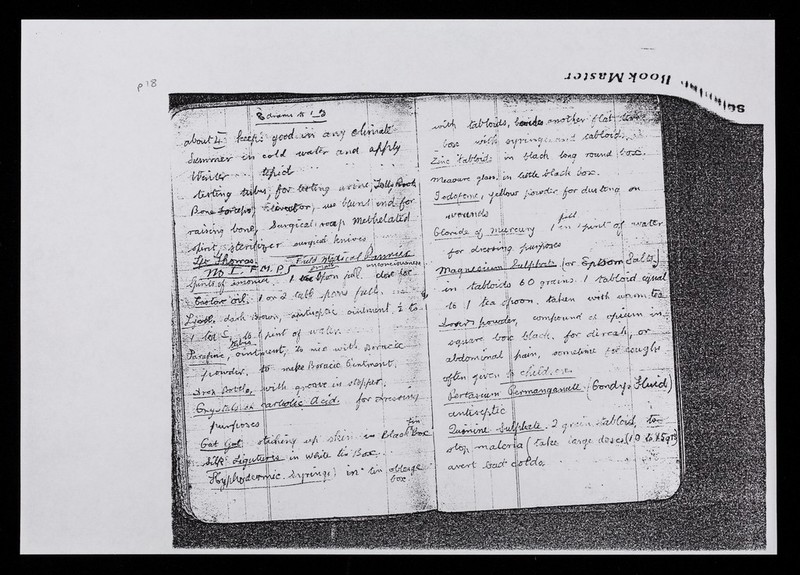 p 18
BookMaster
8 drams to 1 ℥
about 4 keeps good in any climate
Summer in cold water and apply
Winter " tepid
testing tubes, for testing urine, Tooth
Bone forceps, Elevator, use blunt end for
raising bone, Surgical soap Methelated
spirit, sterilizer surgical knives
Thomas. Field Medical Pannier
No I. F. M. P unconsciousness
Spirits of 1 tea spoon full dose for
Castor oil. 1 or 2 table spoons full.
dark brown, antiseptic ointment, 2 to
1 to 1 pint of water.
Parafine, ointment, to mix with Boracic
powder, to make Boracic Ointment,
Drop Bottle, with groove in stopper.
Crystals of carbolic Acid. for dressing
purposes
Cat Gut stiching up skin in Black tin Box
Silk Ligatures in white tin Box.
Hyphodermic Syringe in tin oblong
box
with tabloids, besides another flat
box with syringe and tabloid.
Zinc tabloids in black long round box.
Measure glass, in little black box.
Iodoform, yellow powder for dusting on
wounds
Cloride of mercury 1 pill in 1 pint of water
for dressing purposes
Magnesium Sulphate (or Epsom Salts)
in tabloids 60 grains. 1 tabloid equal
to 1 tea spoon. taken with warm tea
Dovers powder, compound of opium in
square box black. for direah, or
abdominal pain, sometime for coughs
often given to children.
Portasium Permanganate (Condys Fluid)
antiseptic
Quinine Sulphate. 2 grain tabloid, to
stop malaria (take large doses (10 to 15 grs)
avert bad colds.